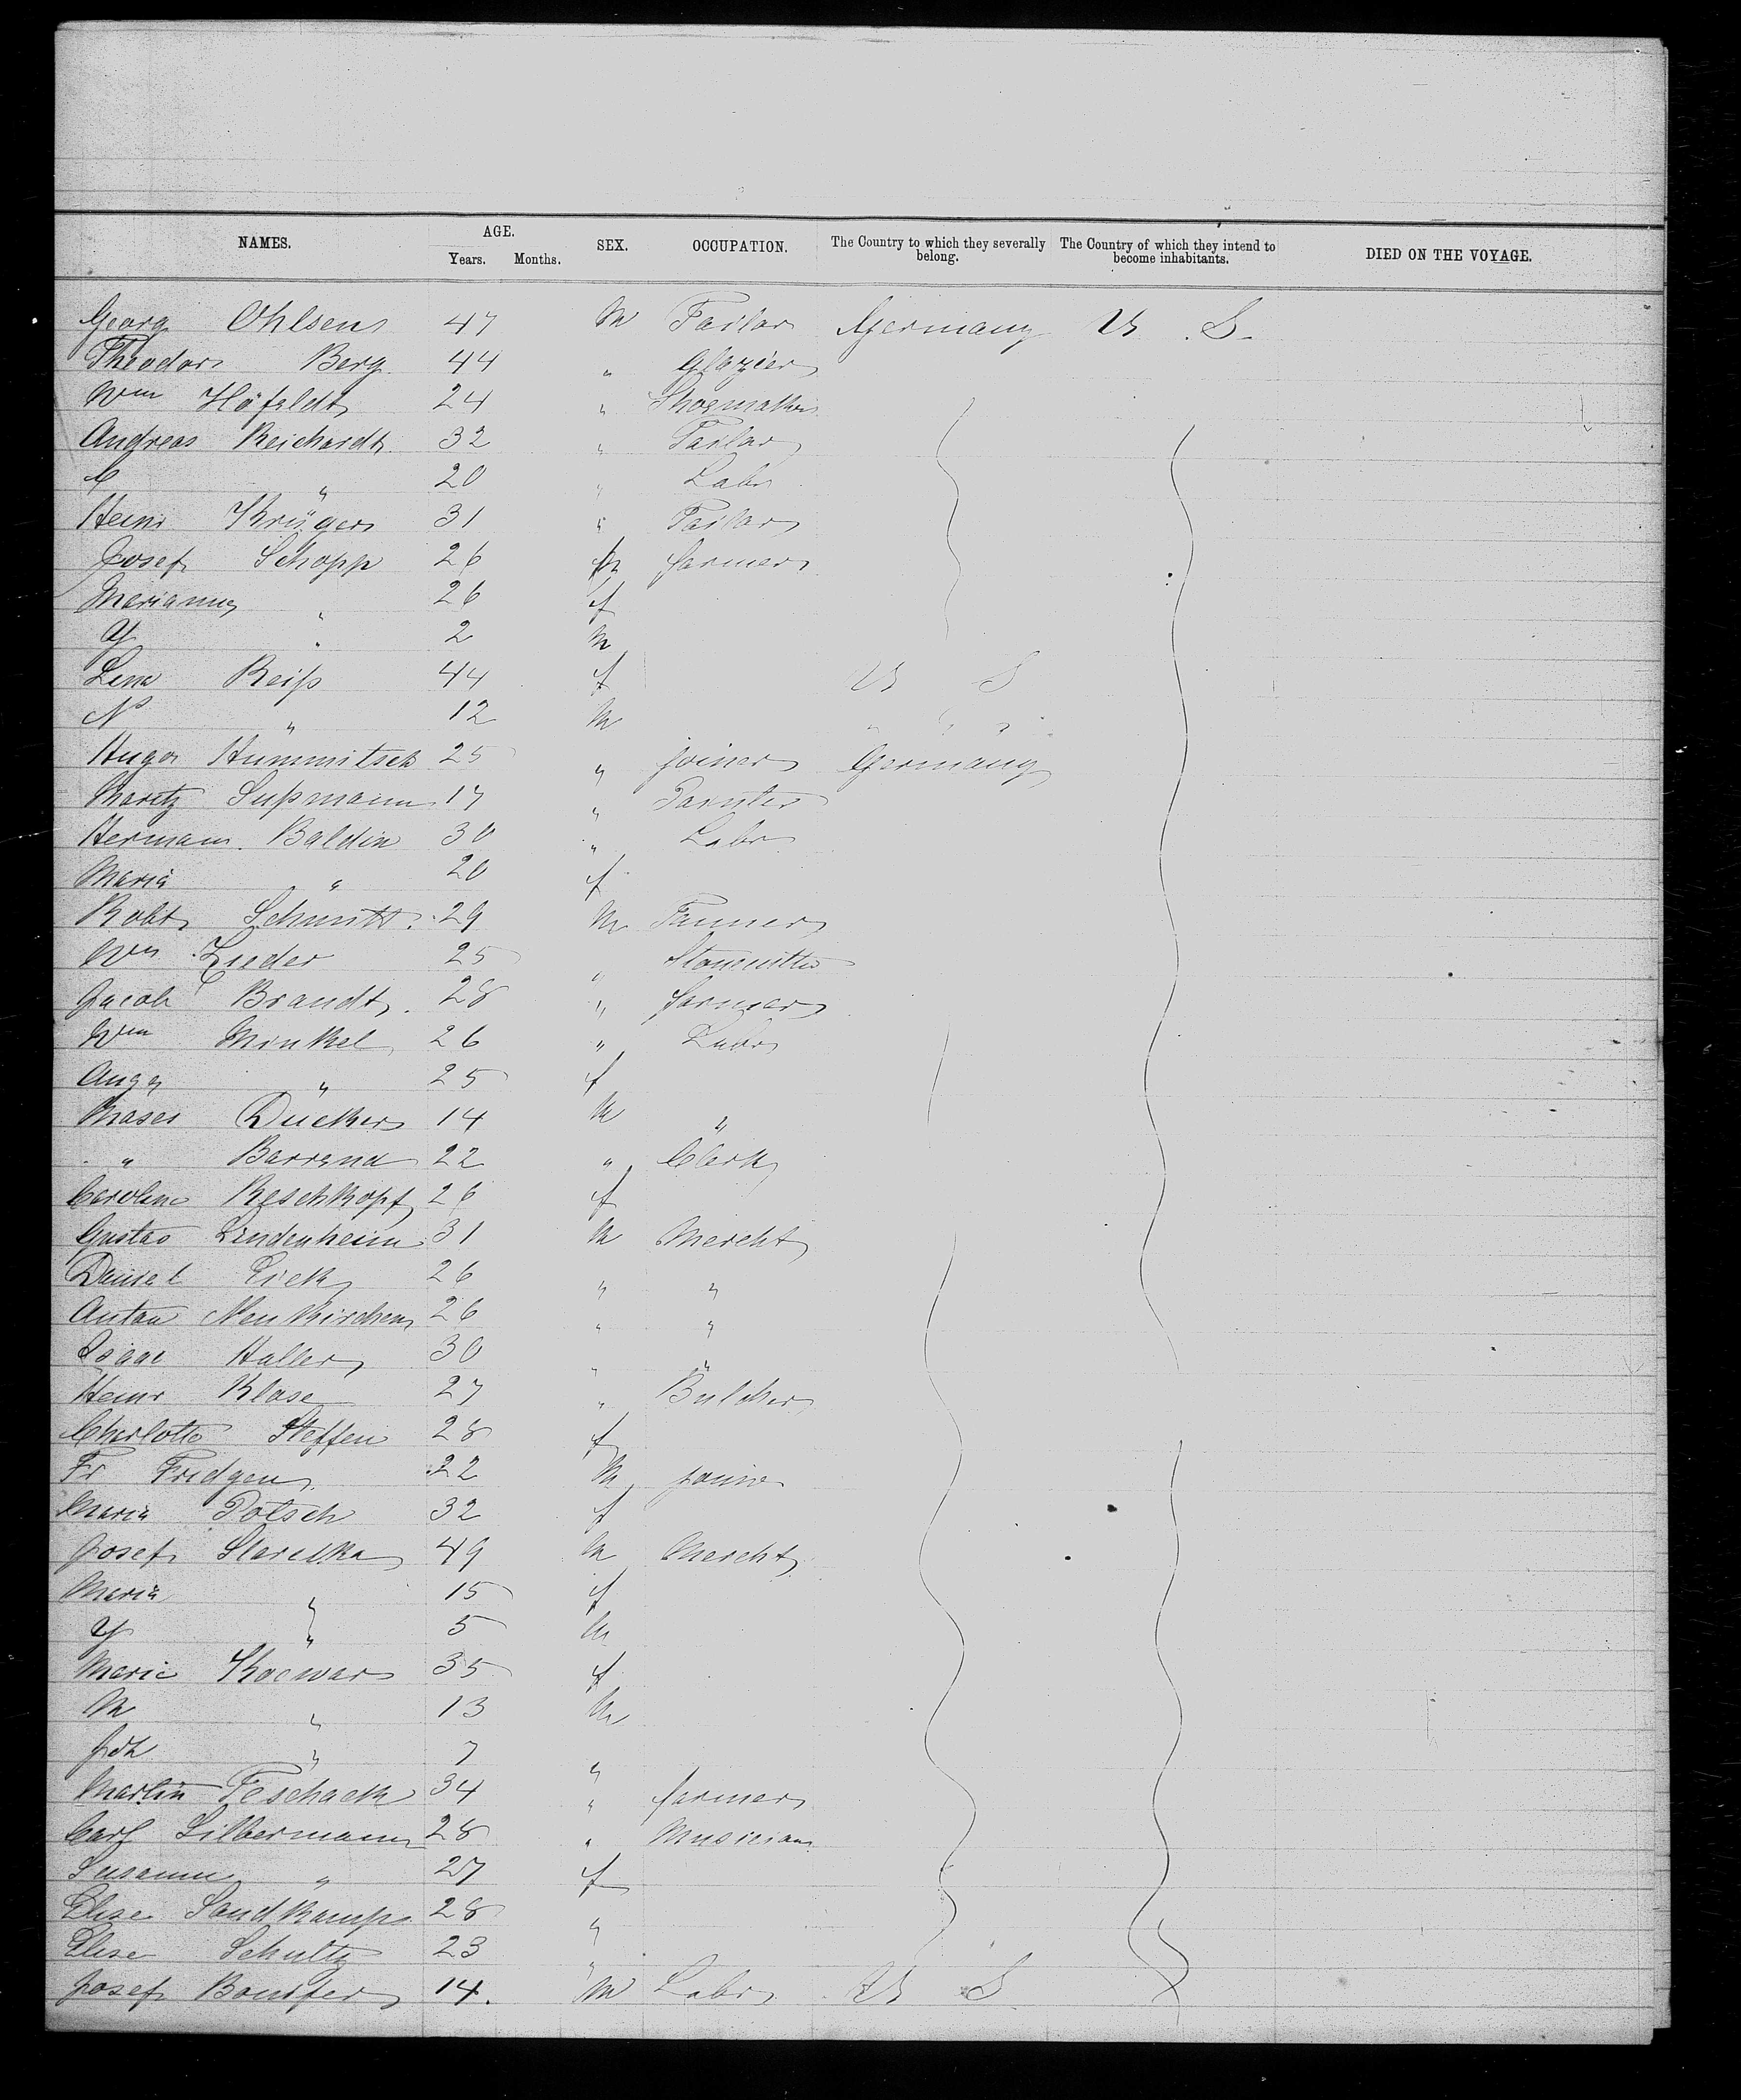 NAMES. AGE. SEX. OCCUPATION. The Country to which they severally belong. The Country of which they intend to become inhabitants. DIED ON THE VOYAGE.
Years. Months.
Georg Ohlsen 47 M Tailor Germany U. S.
Theodor Berg 44 " Glazier
Wm Höfeldt 24 " Shoemaker
Andreas Reichardt 32 " Tailor
C " 20 " Labr
Heinr Krüger 31 " Tailor
Josef Schopp 26 m farmer
Marianne " 26 f
Y " 2 m
Lena Reiß 44 f U S
N " 12 M " " "
Hugo Hummitsch 25 " joiner Germany
Moritz Sußmann 17 " Painter
Hermann Baldin 30 " Labr
Maria " 20 f
Robt Schmitt 29 M Tanner
Wm Zieder 25 "
Jacob Brandt 28 " farmer
Wm Minkel 26 " Labr
Aug " 25 f
Moses Ducker 14 M "
" 22 " Clerk
Caroline Reschkopf 26 f
Gustav Lindenheim 31 M Mercht
Daniel 26 " "
Anton Neukirchen 26 " "
Isaac Haller 30 " "
Heinr Klose 27 " Butcher
Charlotte Steffen 28 f
Fr Fridgen 22 M joiner
Maria Potsch 32 f
Josef 49 M Mercht
Maria " 15 f
Y " 5 M
Marie Kocwar 35 f
M " 13 M
" 7 "
Martin Teschack 34 " farmer
Carl Silbermann 28 " Musician
Susanne " 27 f
Elise Sandkamp 28 "
Elise Schultz 23 "
Josef Bonifer 14. M Labr U S